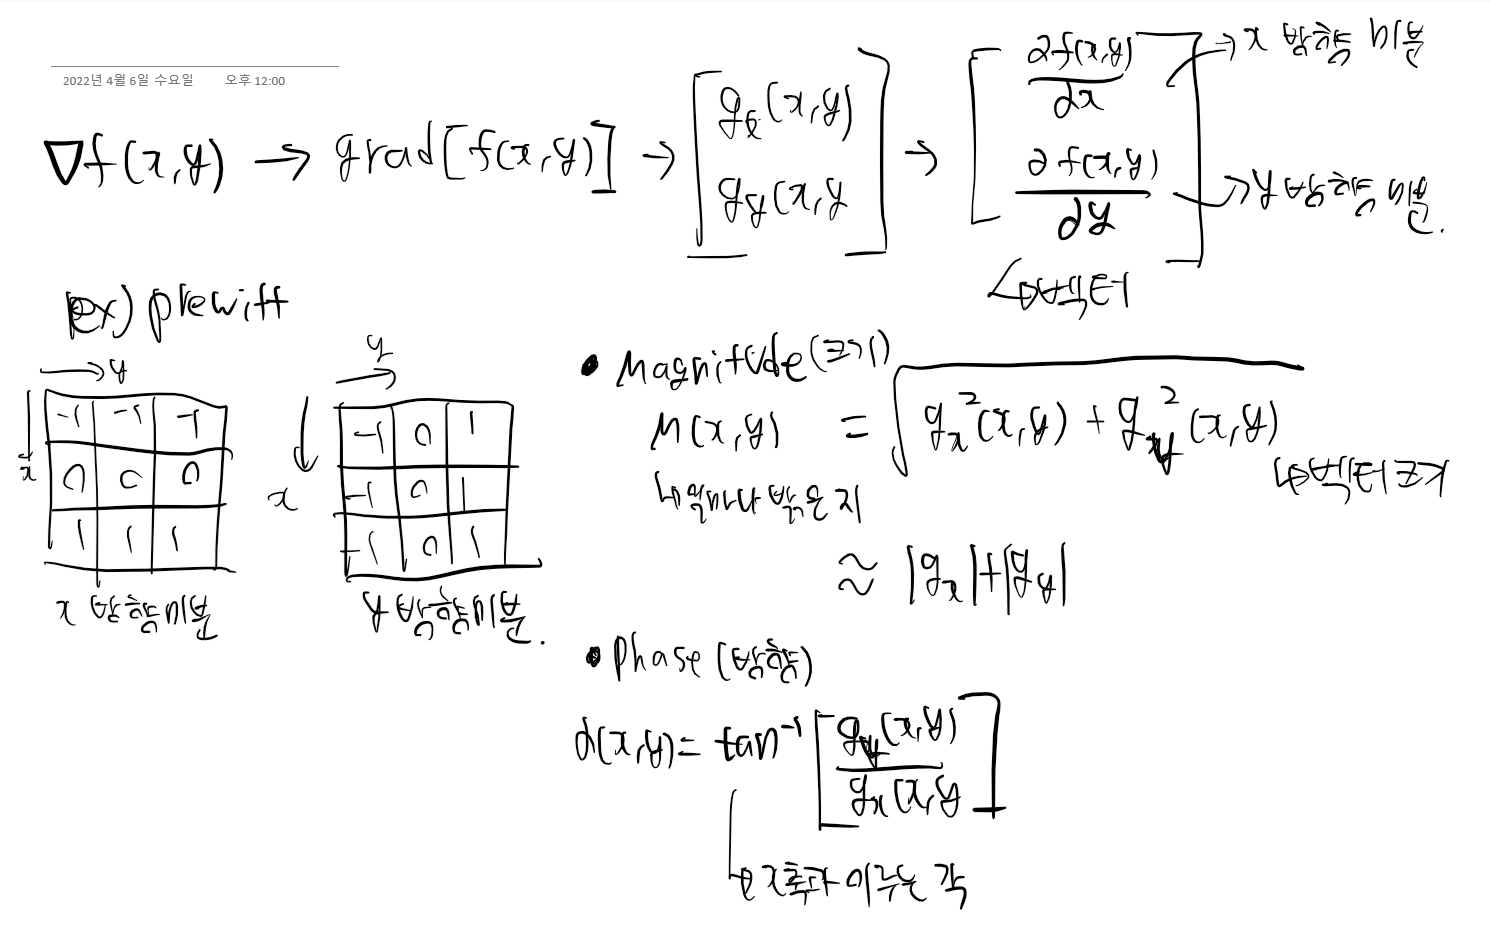 2022년 4월 6일 수요일 오후 12:00
∇f(x,y) → grad[f(x,y)] → [gx(x,y) gy(x,y] → [∂f(x,y)/∂x ∂f(x,y)/∂y]
→ x 방향 미분
→ y 방향 미분.
↳ 벡터
ex) prewitt
→ y
x
-1 -1 -1
0 0 0
1 1 1
x 방향미분
y
x
-1 0 1
-1 0 1
-1 0 1
y 방향미분.
• Magnitude(크기)
M(x,y) = √gx²(x,y) + gy²(x,y)
↳ 벡터 크기
↳ 얼마나 밝은지
≈ |gx|+|gy|
• Phase (방향)
α(x,y) = tan⁻¹ [gy(x,y)/gx(x,y]
↳ x축과 이루는 각